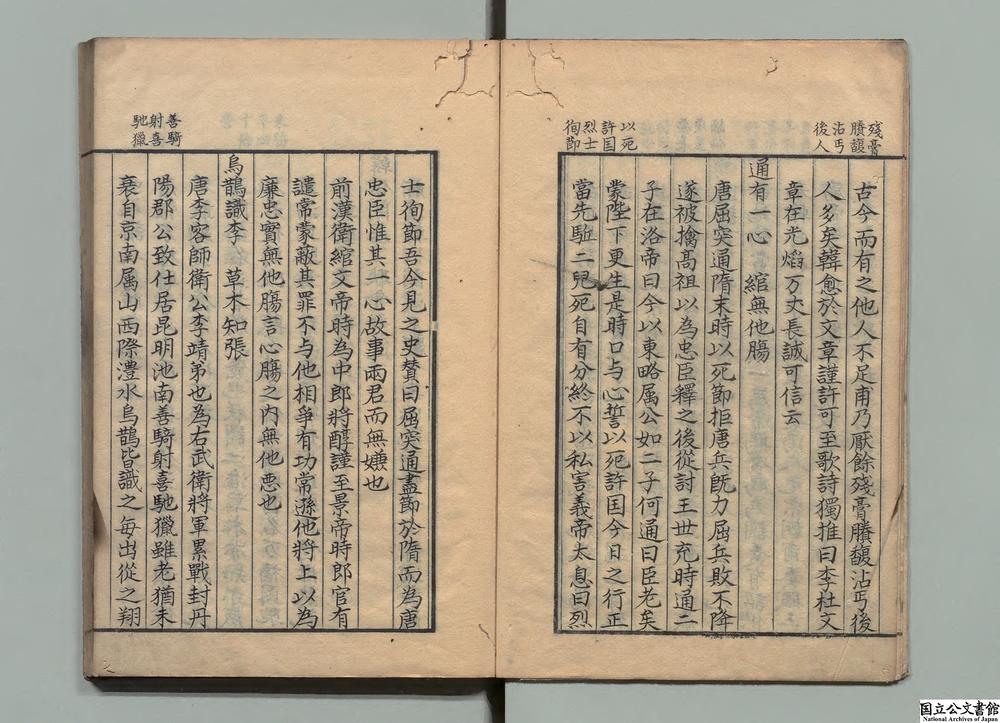 殘膏
賸馥
沾丐
後人
以死
許国
烈士
徇節
古今而有之他人不足甫乃厭餘殘膏賸馥沾丐後
人多矣韓愈於文章謹許可至歌詩獨推曰李杜文
章在光焰万丈長誠可信云
通有一心　綰無他膓
唐屈突通隋末時以死節拒唐兵旣力屈兵敗不降
遂被擒髙祖以為忠臣釋之後從討王世充時通二
子在洛帝曰今以東略属公如二子何通曰臣老矣
蒙陛下更生是時口与心誓以死許国今日之行正
當先駈二兒死自有分終不以私害義帝太息曰烈
善騎
射喜
馳獵
士徇節吾今見之史賛曰屈突通盡節於隋而為唐
忠臣惟其一心故事兩君而無嫌也
前漢衛綰文帝時為中郎將醇謹至景帝時郎官有
譴常蒙蔽其罪不与他相爭有功常遜他將上以為
廉忠實無他膓言心膓之内無他悪也
烏鵲識李　草木知張
唐李客師衛公李靖弟也為右武衛將軍累戰封丹
陽郡公致仕居昆明池南善騎射喜馳獵雖老猶未
衰自京南属山西際澧水烏鵲皆識之每出從之翔
国立公文書館
National Archives of Japan